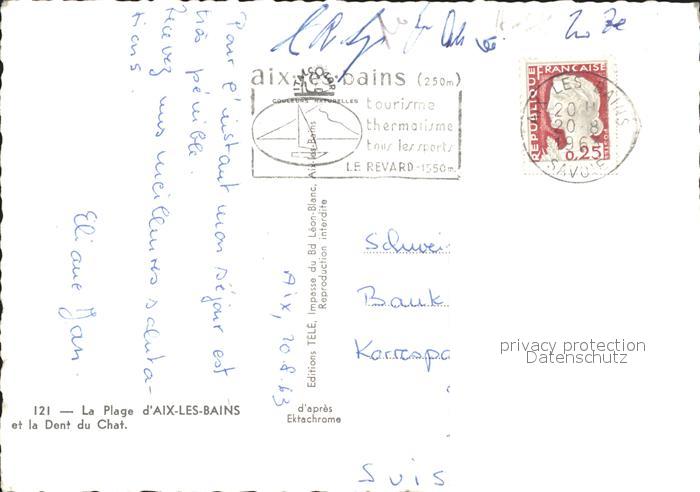 Pour l'instant mon séjour est
très pénible.
Recevez mes meilleures saluta-
tions.
Eliane Jan.
Aix, 20.8.63
aix-les-bains (250m)
COULEURS NATURELLES
tourisme
thermalisme
tous les sports
LE REVARD-1550m.
LES BAINS
20 H
20 8
196
SAVOIE
REPUBLIQUE FRANCAISE
0,25
Editions TELE, Impasse du Bd Léon-Blanc, Aix-les-Bains
Reproduction interdite
Schwei
Bank
Korrespo
SUIS
privacy protection
Datenschutz
121 — La Plage d'AIX-LES-BAINS
et la Dent du Chat.
d'après
Ektachrome